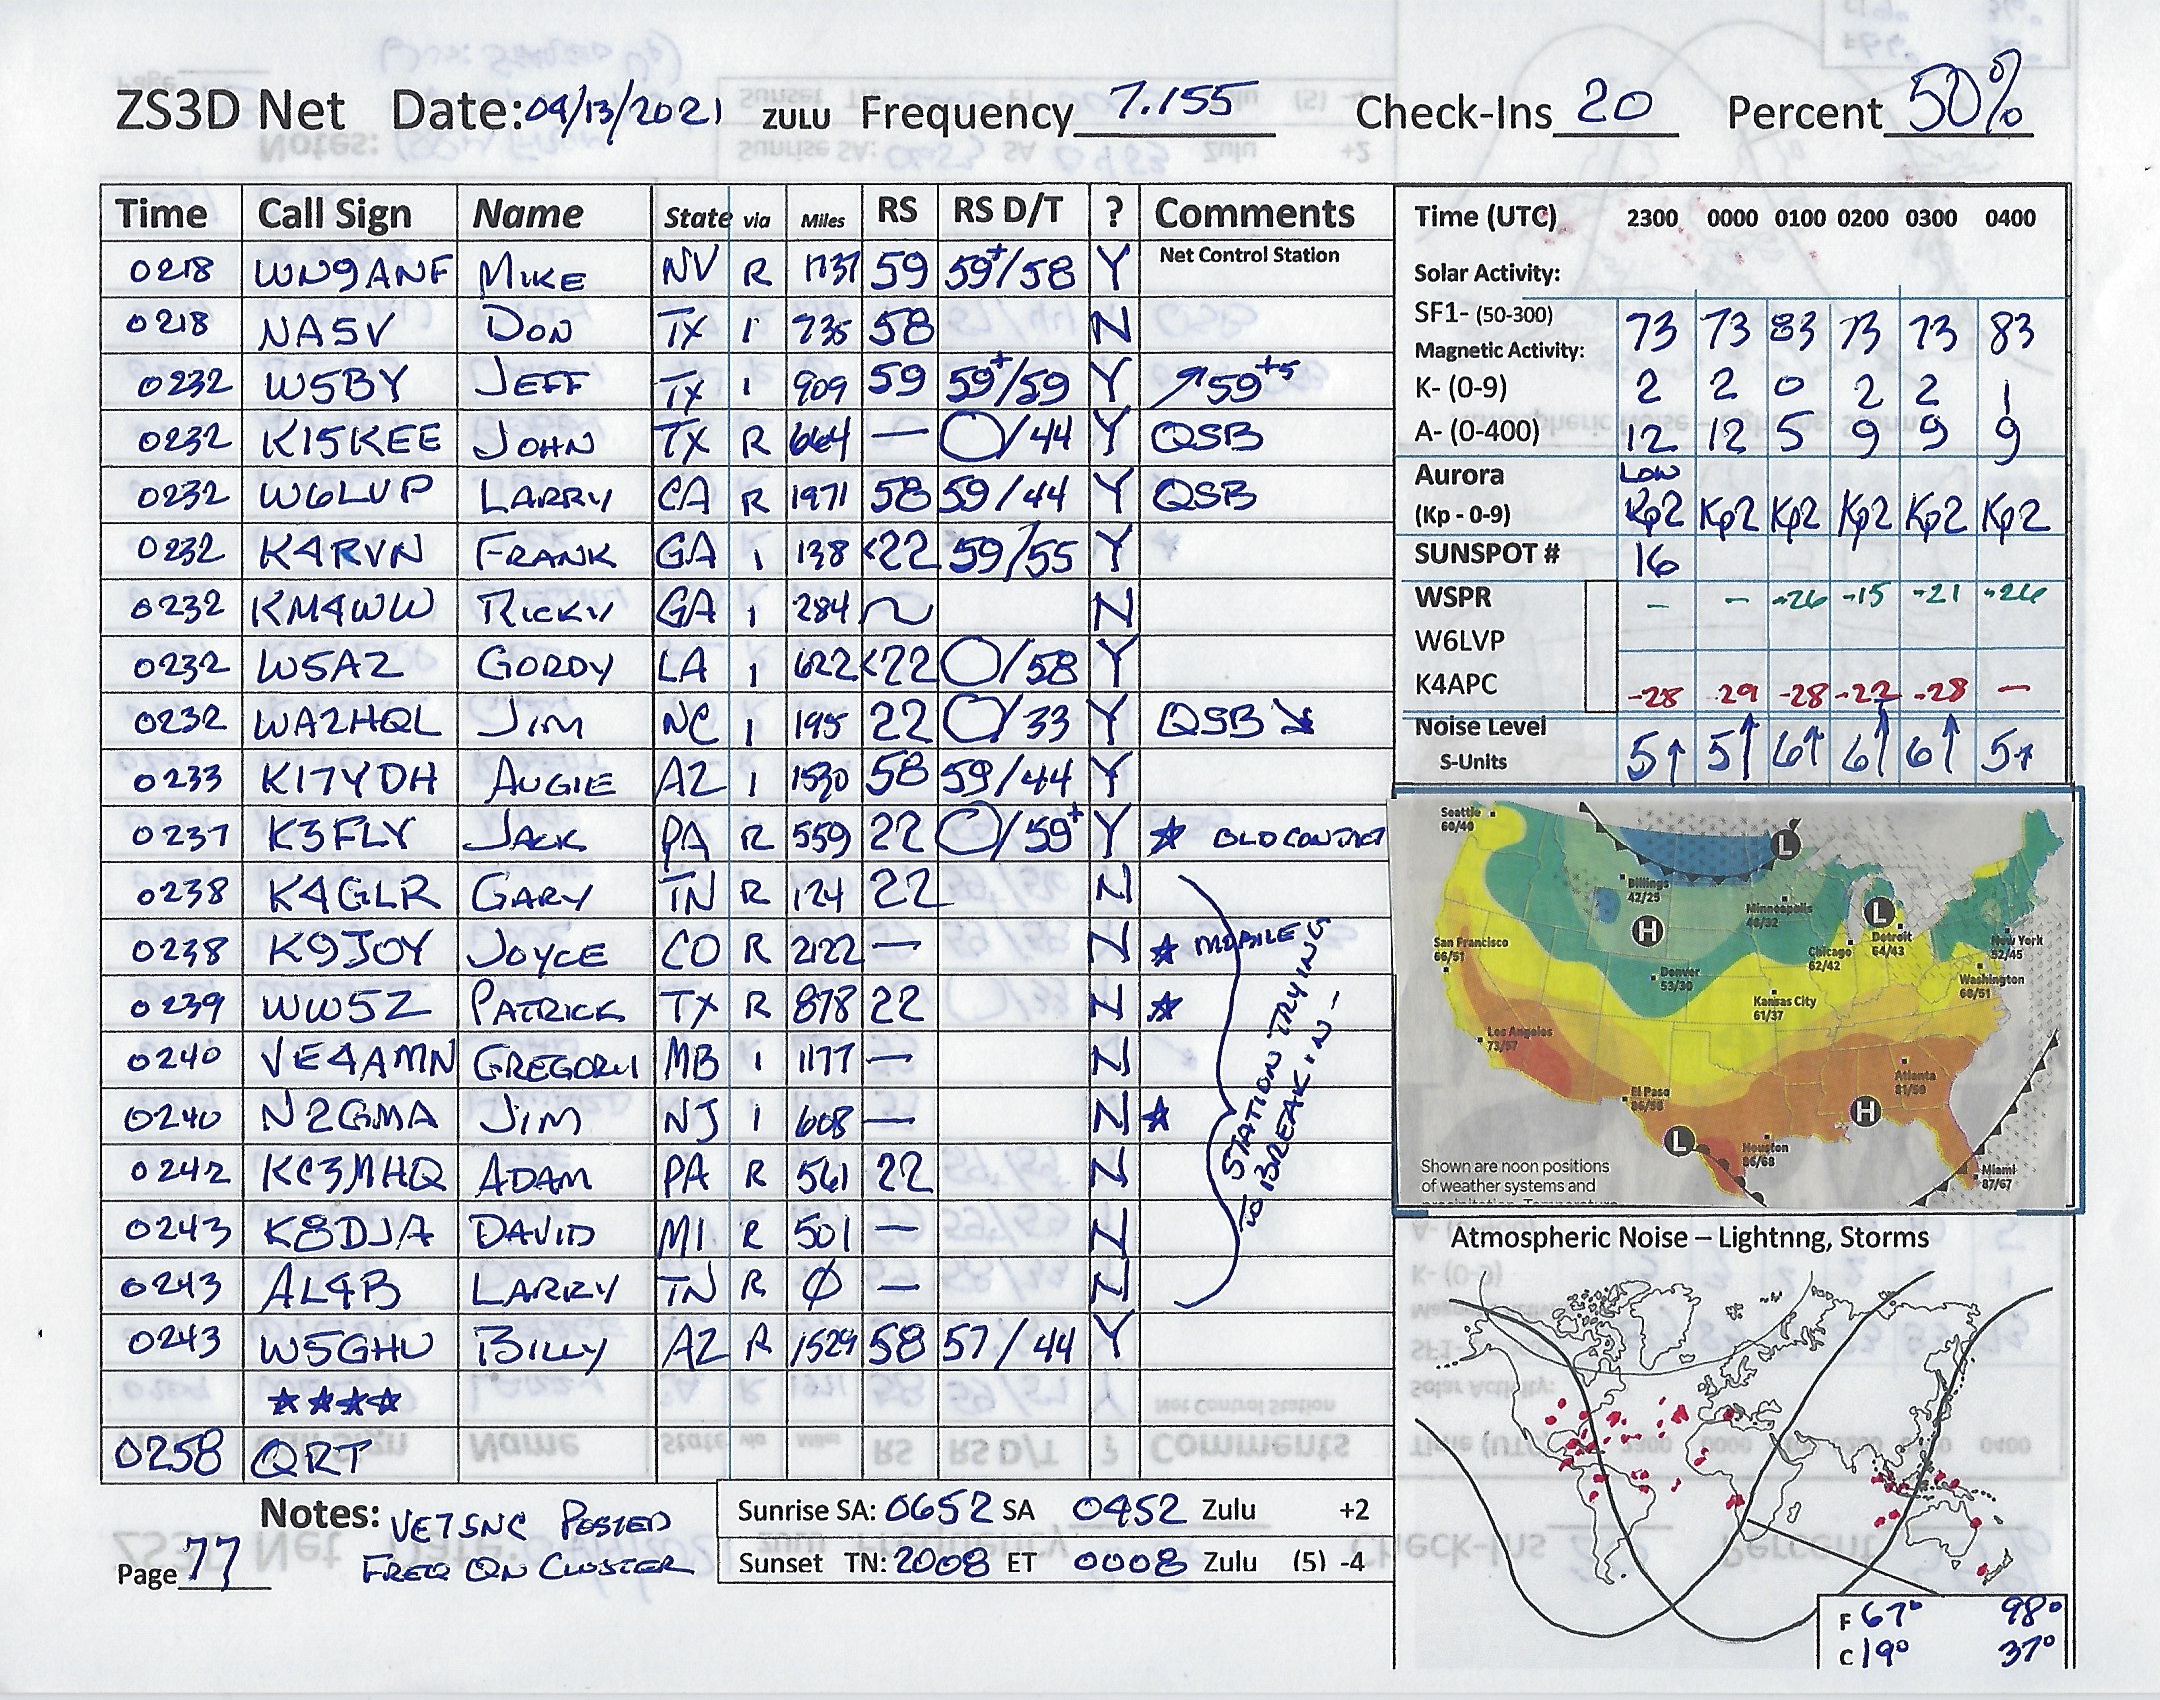 ZS3D Net Date: 04/13/2021 ZULU Frequency 7.155 Check-Ins 20 Percent 50%
Time Call Sign Name State via Miles RS RS D/T ? Comments
0218 WN9ANF MIKE NV R 1737 59 59+/58 Y Net Control Station
0218 NA5V DON TX 1 735 58 N
0232 W5BY JEFF TX 1 909 59 59+/59 Y ↗59+5
0232 K15KEE JOHN TX R 664 — O/44 Y QSB
0232 W6LVP LARRY CA R 1971 58 59/44 Y QSB
0232 K4RVN FRANK GA 1 138 <22 59/55 Y
0232 KM4WW RICKY GA 1 284 ~ N
0232 W5AZ GORDY LA 1 622 <22 O/58 Y
0232 WA2HQL JIM NC 1 195 22 O/33 Y QSB ↘
0233 K17YDH AUGIE AZ 1 1530 58 59/44 Y
0237 K3FLY JACK PA R 559 22 O/59+ Y ★ OLD CONTACT
0238 K4GLR GARY TN R 124 22 N
0238 K9JOY JOYCE CO R 2122 — N ★ MOBILE
0239 WW5Z PATRICK TX R 878 22 N ★
0240 VE4AMN GREGORY MB 1 1177 — N
0240 N2GMA JIM NJ 1 608 — N ★
0242 KC3MHQ ADAM PA R 561 22 N
0243 K8DJA DAVID MI R 501 — N
0243 AL4B LARRY TN R Ø — N
0243 W5GHU BILLY AZ R 1529 58 57/44 Y
★★★★
0258 QRT
STATION TRYING
TO BREAK IN -
Notes: VE7SNC POSTED
FREQ ON CLUSTER
Page 77
Sunrise SA: 0652 SA 0452 Zulu +2
Sunset TN: 2008 ET 0008 Zulu (5) -4
Time (UTC) 2300 0000 0100 0200 0300 0400
Solar Activity:
SF1- (50-300) 73 73 83 73 73 83
Magnetic Activity:
K- (0-9) 2 2 0 2 2 1
A- (0-400) 12 12 5 9 9 9
Aurora LOW
(Kp - 0-9) Kp2 Kp2 Kp2 Kp2 Kp2 Kp2
SUNSPOT # 16
WSPR — — -26 -15 -21 -26
W6LVP
K4APC -28 29 -28 -22 -28 —
Noise Level
S-Units 5↑ 5↑ 6↑ 6↑ 6↑ 5↑
Seattle
60/40
Billings
42/25
Minneapolis
46/32
San Francisco
66/51
Denver
53/30
Chicago
62/42
Detroit
64/43
New York
52/45
Washington
68/51
Kansas City
61/37
Los Angeles
73/57
El Paso
86/58
Atlanta
81/59
Houston
86/68
Miami
87/67
L
H
L
L
H
Shown are noon positions
of weather systems and
Atmospheric Noise – Lightnng, Storms
F 67° 98°
C 19° 37°